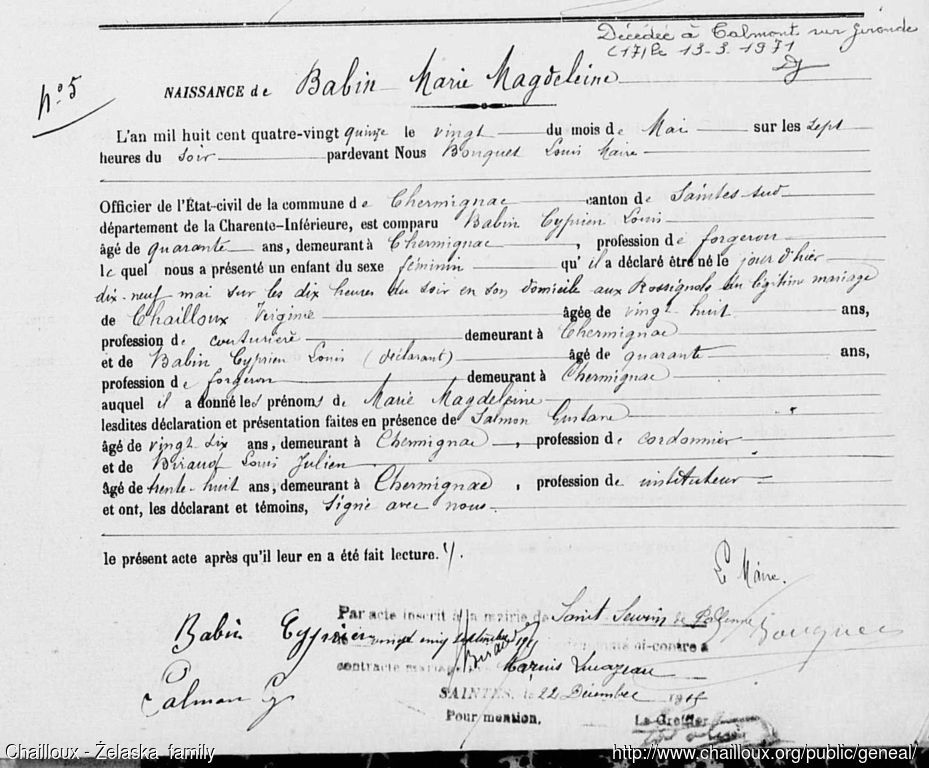 Décédée à Talmont sur Gironde
(17) le 13-3-1971
n° 5
NAISSANCE de Babin Marie Magdeleine
L'an mil huit cent quatre-vingt quinze le vingt du mois de Mai sur les sept
heures du soir pardevant Nous Bouquet Louis Maire
Officier de l'État-civil de la commune de Chermignac canton de Saintes-sud
département de la Charente-Inférieure, est comparu Babin Cyprien Louis
âgé de quarante ans, demeurant à Chermignac, profession de forgeron
le quel nous a présenté un enfant du sexe féminin qu'il a déclaré être né le jour d'hier
dix-neuf mai sur les dix heures du soir en son domicile aux Rossignols du légitime mariage
de Chailloux Virginie âgée de vingt huit ans,
profession de couturière demeurant à Chermignac
et de Babin Cyprien Louis (déclarant) âgé de quarante ans,
profession de forgeron demeurant à Chermignac
auquel il a donné les prénoms de Marie Magdeleine
lesdites déclaration et présentation faites en présence de Salmon Gustave
âgé de vingt six ans, demeurant à Chermignac, profession de cordonnier
et de Biraud Louis Julien
âgé de trente-huit ans, demeurant à Chermignac, profession de instituteur
et ont, les déclarant et témoins, signé avec nous
le présent acte après qu'il leur en a été fait lecture.
Le Maire.
Par acte inscrit à la mairie de Saint Seurin de
Bouquet
Babin Cyprien
le vingt cinq septembre ci-contre a
Biraud
contracté mariage
Salmon G
SAINTES, le 22 Décembre
Pour mention.
Le Greffier
Chailloux - Želaska family
http://www.chailloux.org/public/geneal/